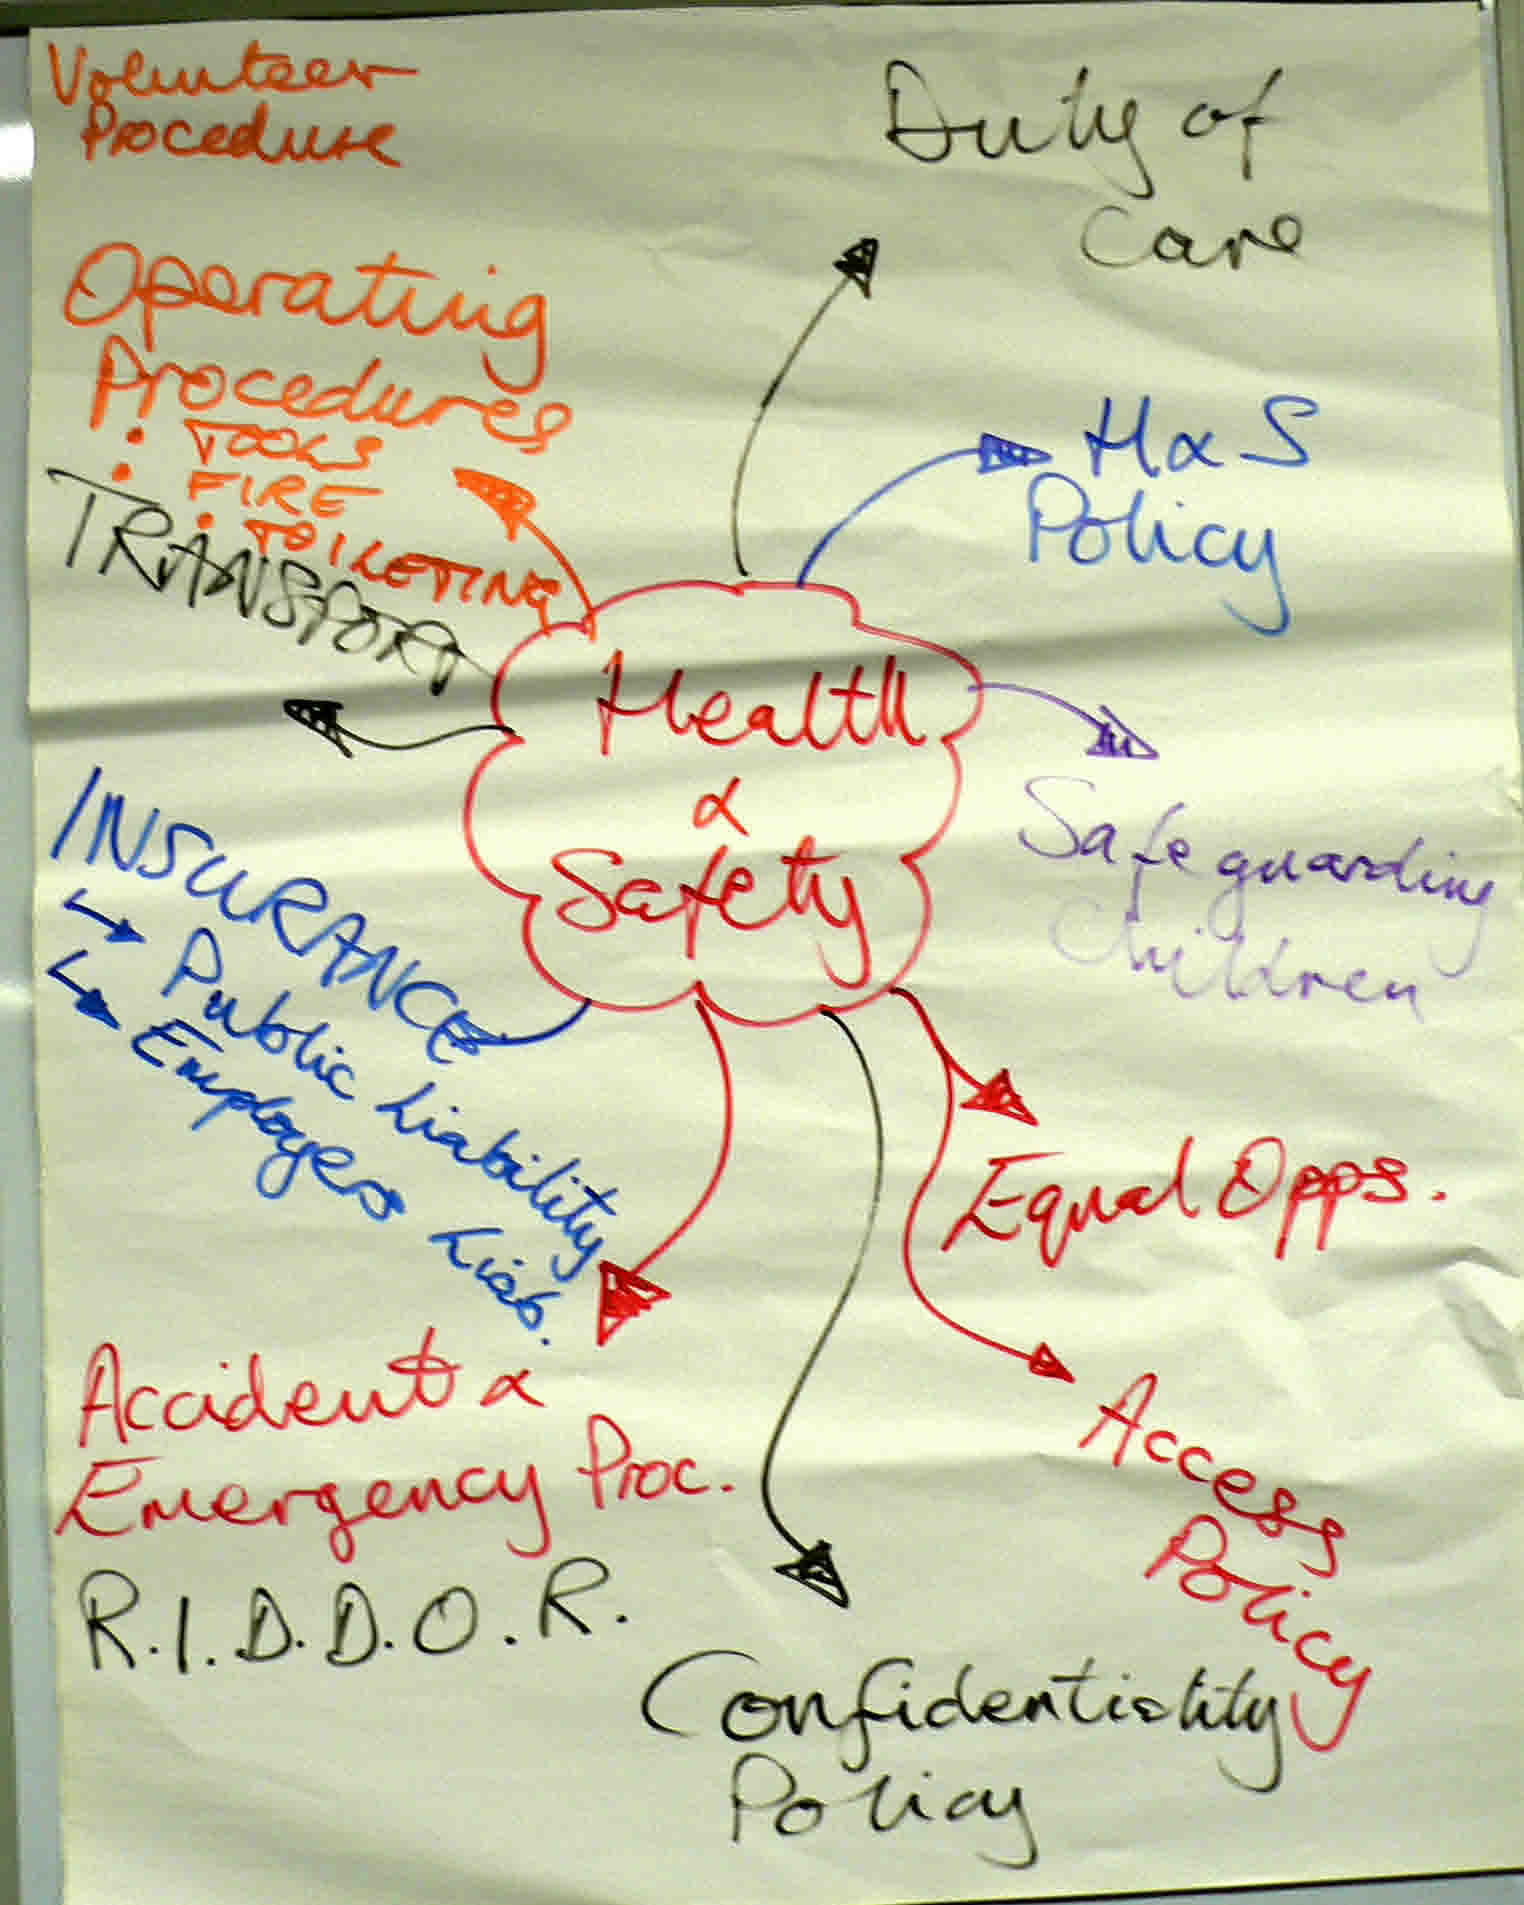 Volunteer
Procedure
Operating
Procedures
• TOOLS
• FIRE
• TOILETING
TRANSPORT
INSURANCE
Public Liability
Employers Liab.
Accident &
Emergency Proc.
R.I.D.D.O.R.
Health
&
Safety
Duty of
Care
H & S
Policy
Safeguarding
Children
Equal Opps.
Access
Policy
Confidentiality
Policy